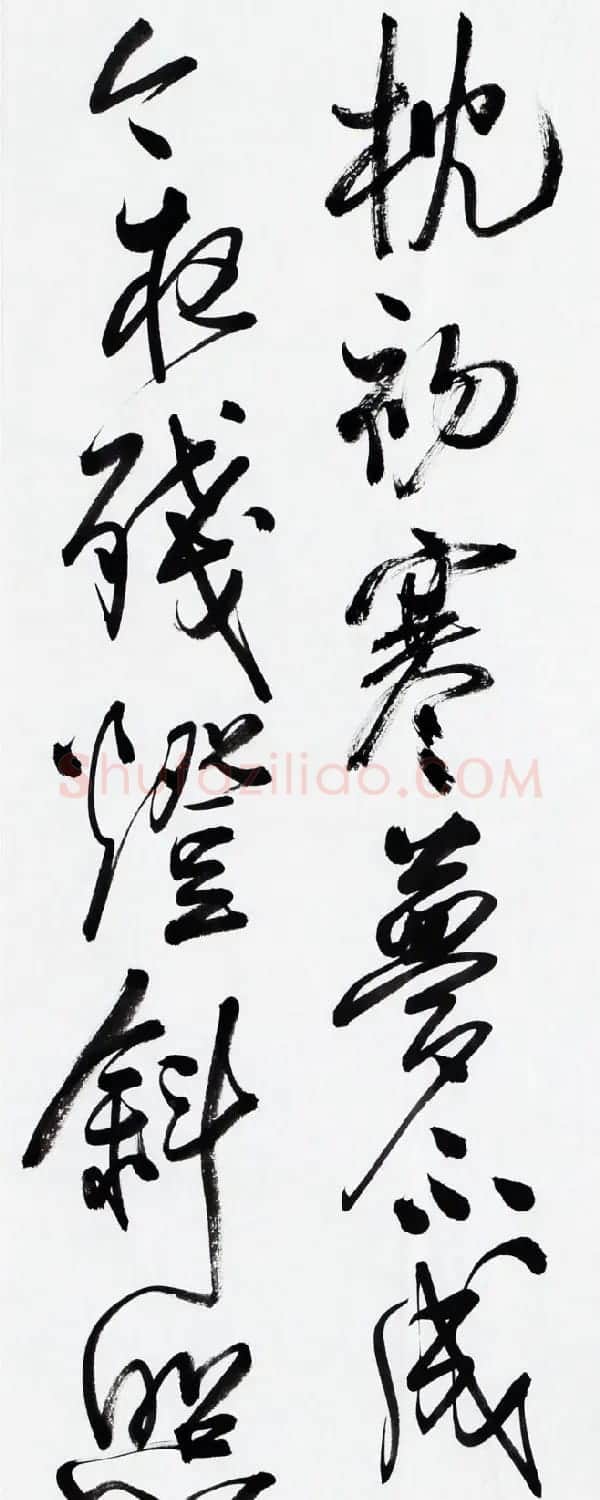 枕初寒夢不成
今夜殘燈斜照
Shufaziliao.COM